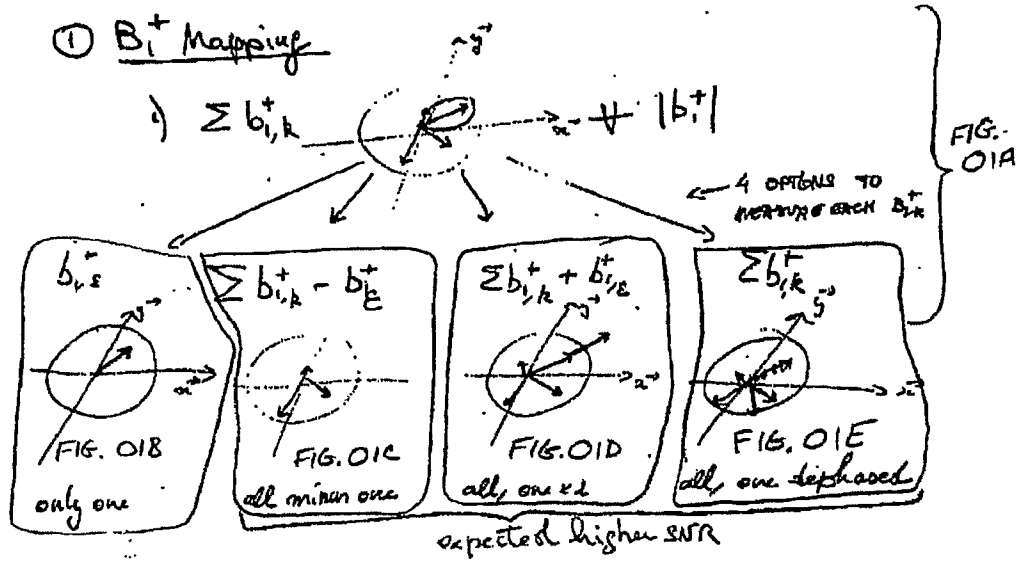 ① B₁⁺ Mapping
Σ b⁺₁,ₖ
y⃗
x⃗
|b₁⁺|
FIG. 01A
← 4 OPTIONS TO
MEASURE EACH B⁺₁,ₖ
b₁,ε⁺
y⃗
x⃗
FIG. 01B
only one
Σ b⁺₁,ₖ - b⁺ε
FIG. 01C
all minus one
Σ b⁺₁,ₖ + b⁺₁,ε
y⃗
x⃗
FIG. 01D
all, one x2
Σ b⁺₁,ₖ
y⃗
x⃗
FIG. 01E
all, one dephased
expected higher SNR